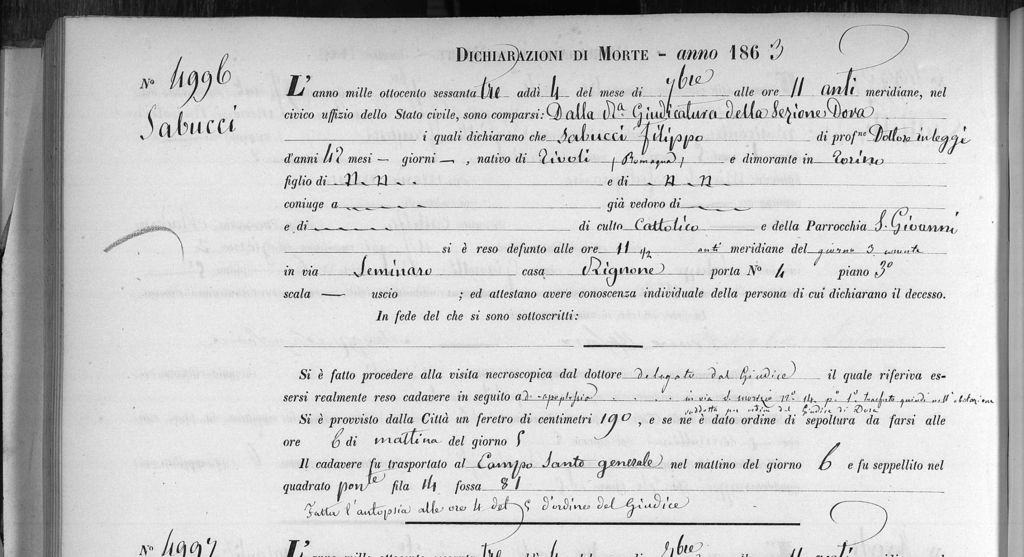 DICHIARAZIONI DI MORTE - anno 1863
N° 4996
Sabucci
L'anno mille ottocento sessanta tre addì 4 del mese di 7bre alle ore 11 anti meridiane, nel
civico uffizio dello Stato civile, sono comparsi: Dalla Ra Giudicatura della Sezione Dora
i quali dichiarano che Sabucci filippo di profne Dottore in leggi
d'anni 42 mesi — giorni — , nativo di Tivoli (Romagna) e dimorante in Torino
figlio di N N e di N N
coniuge a già vedovo di
e di di culto Cattolico e della Parrocchia S. Giovanni
si è reso defunto alle ore 11 1/2 anti meridiane del giorno 3 corrente
in via Seminaro casa Rignone porta N° 4 piano 3°
scala — uscio ; ed attestano avere conoscenza individuale della persona di cui dichiarano il decesso.
In fede del che si sono sottoscritti:
Si è fatto procedere alla visita necroscopica dal dottore delegato dal Giudice il quale riferiva es-
sersi realmente reso cadavere in seguito ad apoplessia in via S. Morizio N° 14 p° 1° trasfato quindi nell'abitazione
suddetta per ordine del Giudice di Dora
Si è provvisto dalla Città un feretro di centimetri 190 , e se ne è dato ordine di sepoltura da farsi alle
ore 6 di mattina del giorno 5
Il cadavere fu trasportato al Campo Santo generale nel mattino del giorno 6 e fu seppellito nel
quadrato ponte fila 14 fossa 81
Fatta l'autopsia alle ore 4 del 5 d'ordine del Giudice
N° 4997
L'anno mille ottocento sessanta tre addì 4 del mese di 7bre alle ore 11 anti meridiane, nel